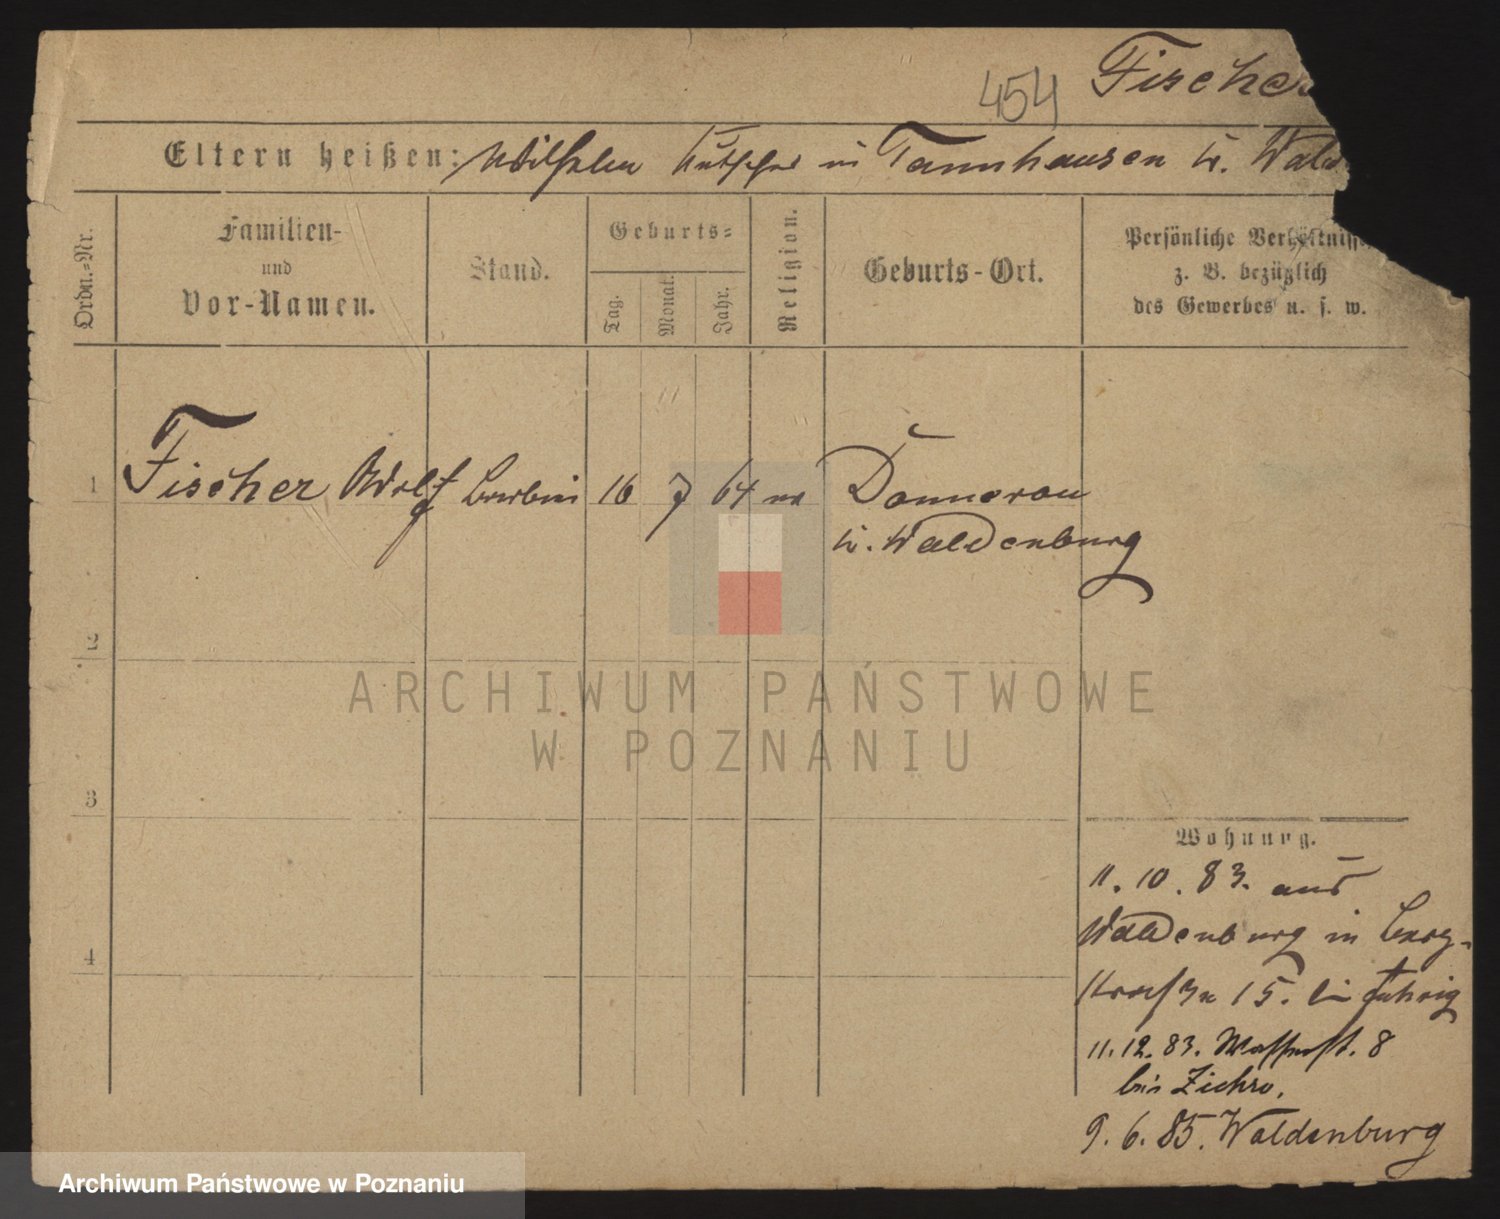 454 Fischer
Eltern heißen: Wilhelm Kutscher in Tannhausen Kr. Wald
Ordn.-Nr.
Familien-
und
Vor-Namen.
Stand.
Geburts-
Tag.
Monat.
Jahr.
Religion.
Geburts-Ort.
Persönliche Verhältnisse
z. B. bezüglich
des Gewerbes u. s. w.
1 Fischer Adolf 16 7 64 Donnerau
Kr. Waldenburg
2
3
4
Wohnung.
11. 10. 83. aus
Waldenburg in Berg-
15. bei
11. 12. 83. Wasserst. 8
bei
9. 6. 85. Waldenburg
ARCHIWUM PAŃSTWOWE
W POZNANIU
Archiwum Państwowe w Poznaniu